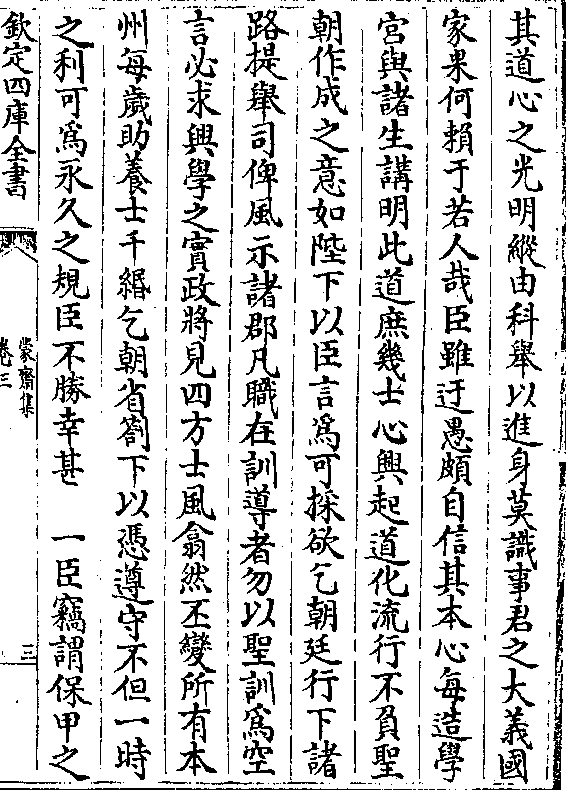 其道心之光明縱由科舉以進身莫識事君之大義國
家果何賴于若人哉臣雖迂愚頗自信其本心每造學
宫與諸生講明此道庶幾士心興起道化流行不負聖
朝作成之意如陛下以臣言為可採欲乞朝廷行下諸
路提舉司俾風示諸郡凡職在訓導者勿以聖訓為空
言必求興學之實政將見四方士風翕然丕變所有本
州每歲助養士千緡乞朝省劄下以憑遵守不但一時
之利可為永久之規臣不勝幸甚　一臣竊謂保甲之
欽定四庫全書
蒙齋集
卷三
三